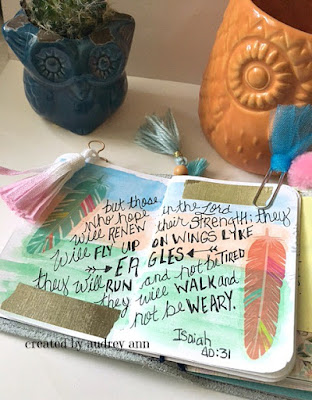 but those
who hope in the Lord
will RENEW their STRENGTH; they
will FLY UP ON WINGS LYKE
EAGLES
they will RUN and not be TIRED
they will WALK and
not be WEARY.
Isaiah
40:31
created by audrey ann
created by audrey ann